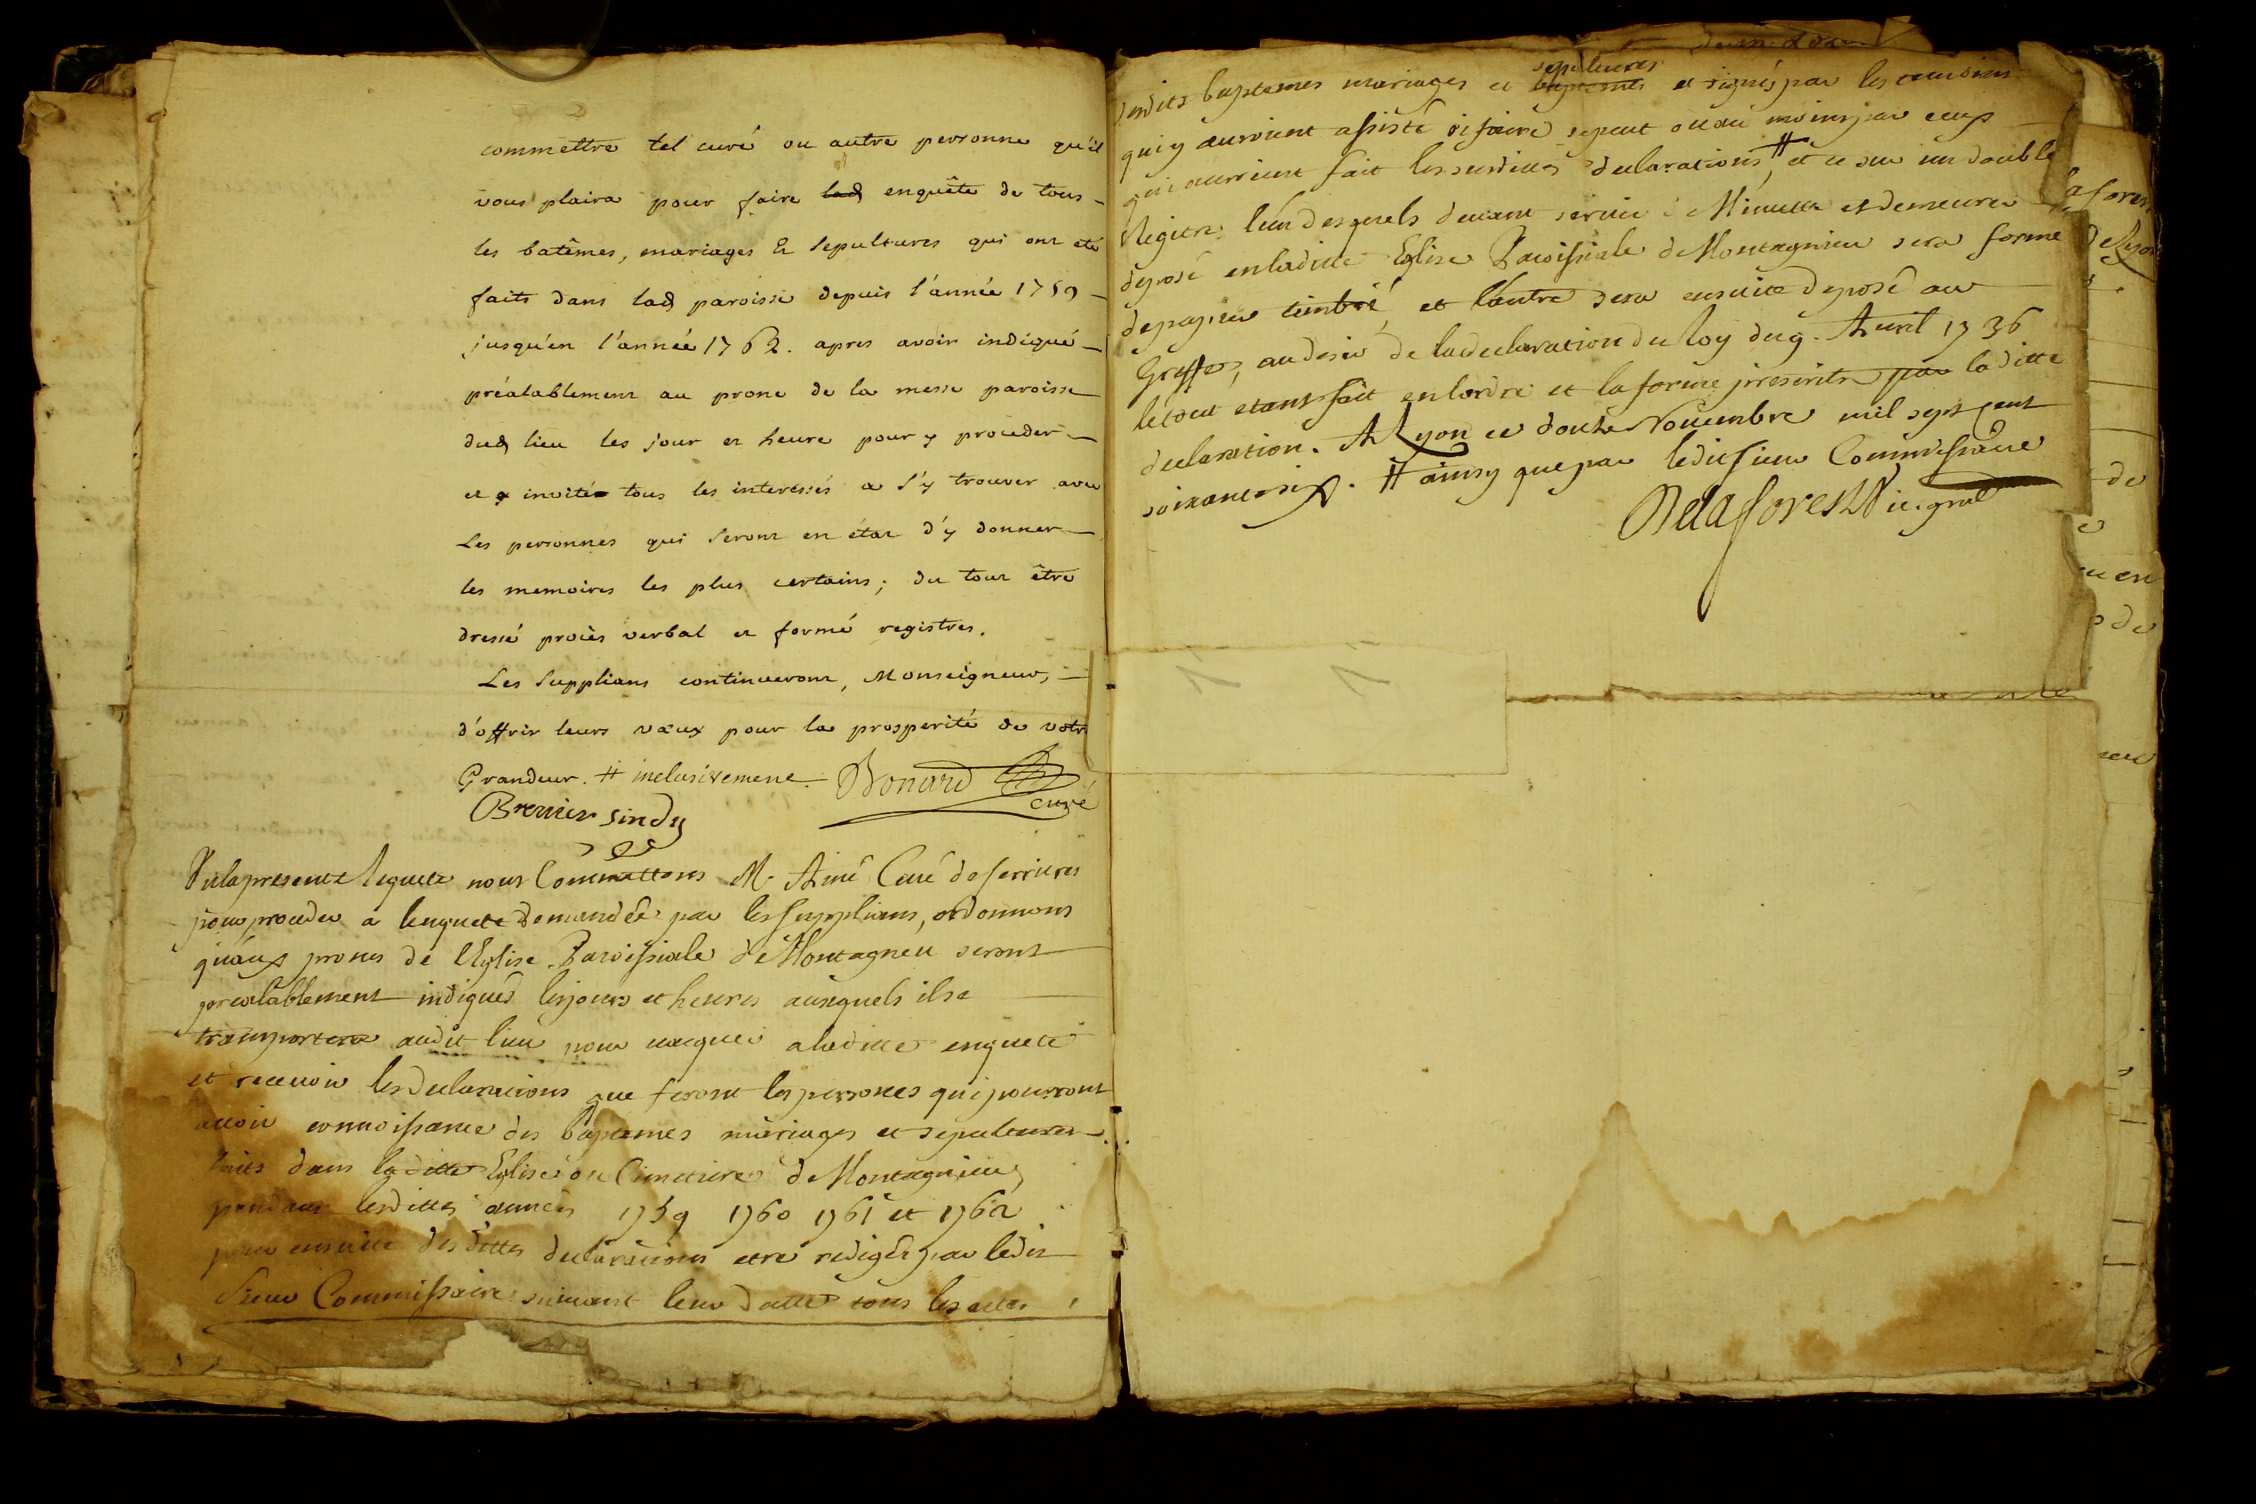 commettre tel curé ou autre personne qu'il
vous plaira pour faire lad enquête de tous
les batêmes, mariages & sepultures qui ont été
faits dans lad paroisse depuis l'année 1759
jusqu'en l'année 1762. apres avoir indiqué
préalablement au prone de la messe paroisse
dud lieu les jour et heure pour y proceder
et invité tous les interessés a s'y trouver avec
Les personnes qui seront en état d'y donner
les memoires les plus certains; du tout être
dressé procès verbal et formé registres.
Les Supplians continueront, Monseigneur,
d'offrir leurs vœux pour la prosperité de votre
Grandeur. # inclusivement Bonard
curé
Brevier sindy
Vu la presente Requete nous Commettons M. Aimé Curé de serrieres
pour proceder a lenquete demandée par les supplians, ordonnons
qu'aux prones de l'Eglise Paroissiale de Montagneu seront
prealablement indiqués les jours et heures ausquels il se
transportera audit lieu pour vacquer a laditte enquete
et recevoir les declarations que feront les personnes qui pourront
avoir connoissance des baptemes mariages et sepultures
faits dans laditte Eglise ou Cimetiere de Montagnieu
pendant lesdittes années 1759 1760 1761 et 1762
pour ensuite desdittes declarations etre redigés par ledit
Sieur Commissaire suivant leur datte tous les actes
desdits baptemes mariages et baptemes sepultures et signés par les temoins
qui y auroient assisté si faire se peut ou au moins par ceux
qui auroient fait les susdittes declarations, # et ce sur un double
Registre lun desquels devant servir de Minutte et demeurer
deposé en laditte Eglise Paroissiale de Montagnieu sera formé
de papier timbré, et l'autre sera ensuite deposé au
Greffe, au desir de la declaration du Roy du 9. Avril 1736
le tout etant fait en lordre et la forme prescritte par laditte
declaration. A Lyon ce douze Novembre mil sept cent
soixante six. # ainsy que par ledit sieur Commissaire
Delaforest Vic. gnal